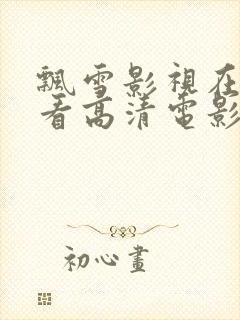 飄雪影視在
看高清電影
初心畫